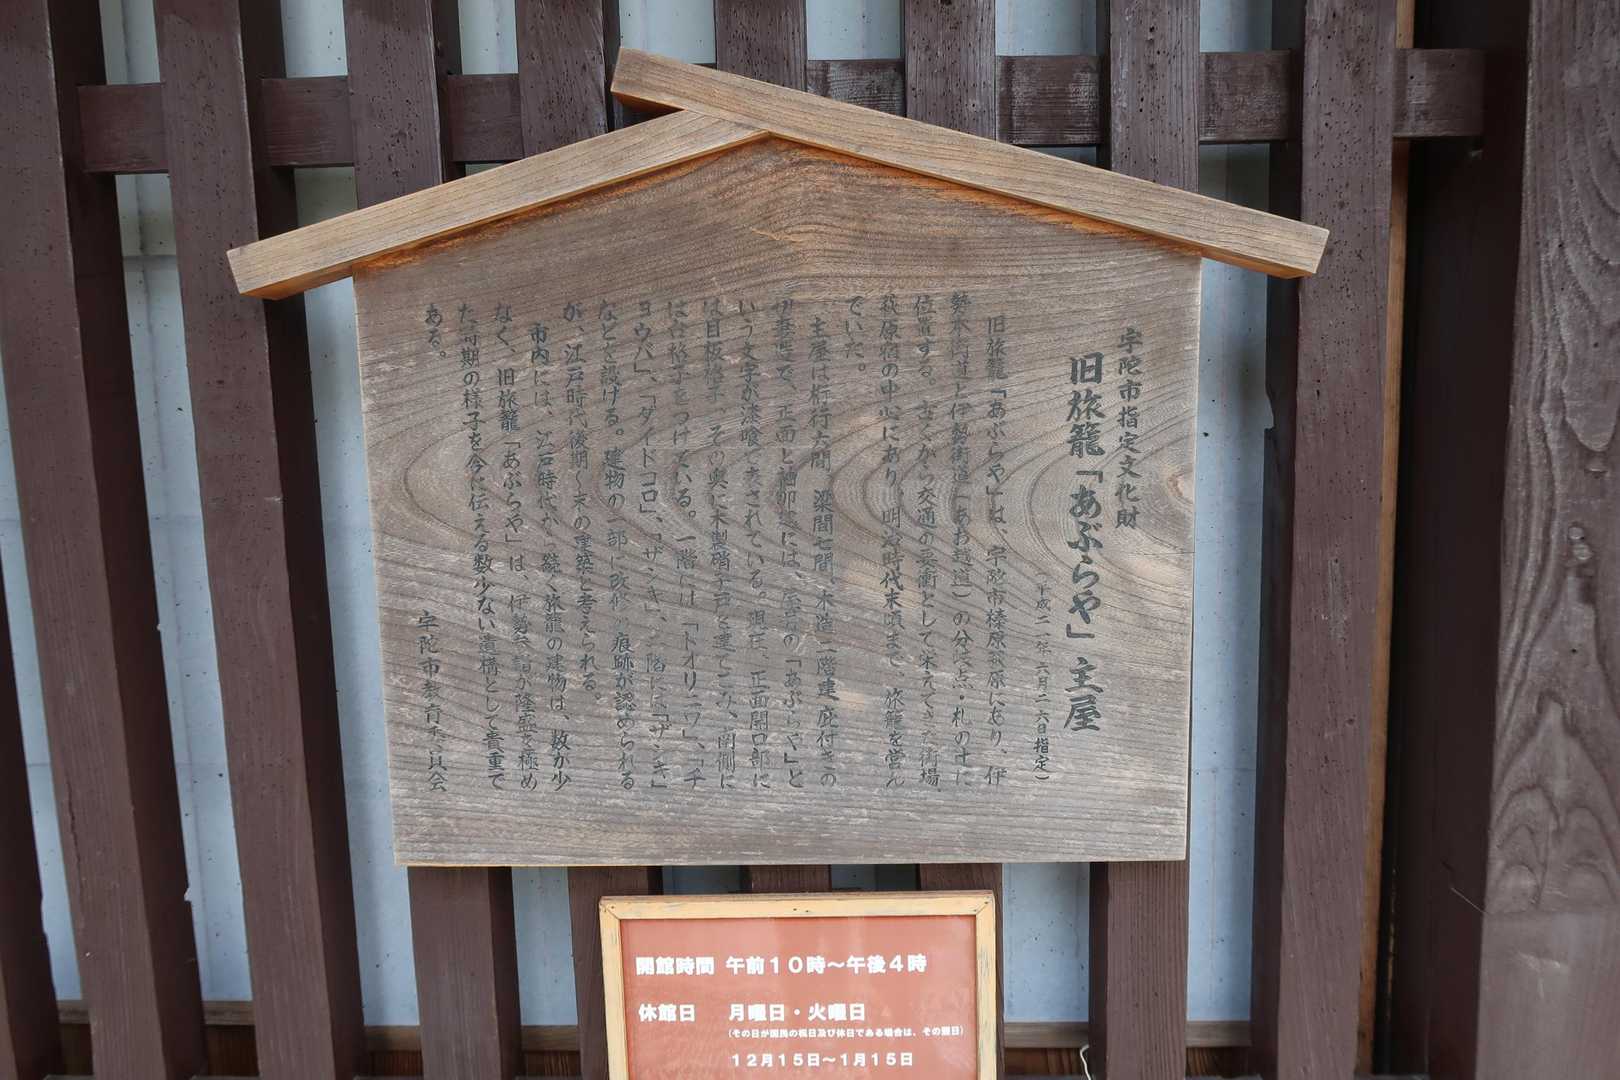 宇陀市指定文化財
旧旅籠「あぶらや」主屋
(平成二一年六月二六日指定)
旧旅籠「あぶらや」は、宇陀市榛原萩原にあり、伊
勢本街道と伊勢街道(あお越道)の分岐点・札の辻に
位置する。古くから交通の要衝として栄えてきた街場、
萩原宿の中心にあり、明治時代末頃まで、旅籠を営ん
でいた。
主屋は桁行六間、梁間七間、木造二階建、庇付きの
妻で、正面と袖卯建には、「あぶらや」と
いう文字が漆喰で表されている。現在、正面開口部に
は目板格子、その奥に木製硝子戸を建てこみ、南側に
は台格子をつけている。一階には「トオリニワ」、「チ
ョウバ」、「ダイドコロ」、「ザシキ」、二階には「ザシキ」
などを設ける。建物の一部に改修の痕跡が認められる
が、江戸時代後期〜末の建築と考えられる。
市内には、江戸時代から続く旅籠の建物は、数が少
なく、旧旅籠「あぶらや」は、伊勢参詣が隆盛を極め
た時期の様子を今に伝える数少ない遺構として貴重で
ある。
宇陀市教育委員会
開館時間 午前10時〜午後4時
休館日 月曜日・火曜日
(その日が国民の祝日及び休日である場合は、その翌日)
12月15日〜1月15日